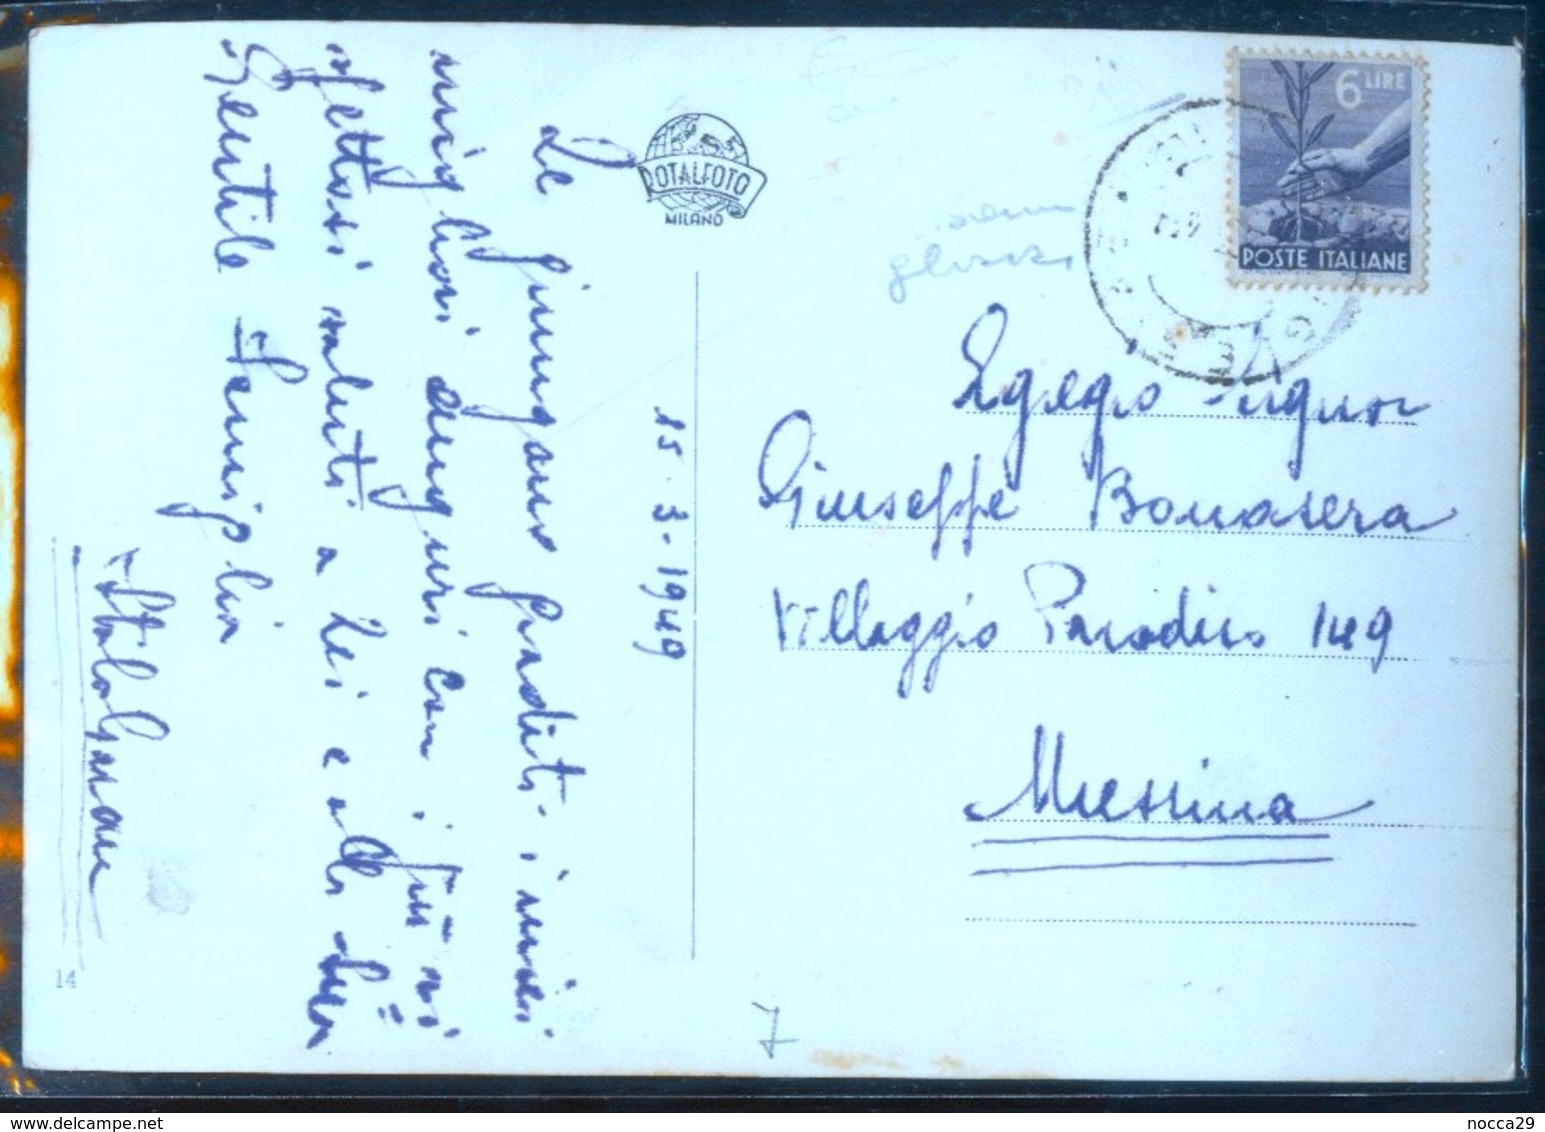 Le giungano graditi i miei
migliori auguri con i più vi=
vi affettuosi saluti a Lei e alla Sua
Gentile Famiglia
15.3.1949
ROTALFOTO
MILANO
6 LIRE
POSTE ITALIANE
Egregio Signor
Giuseppe Bonasera
Villaggio Paradiso 149
Messina
14
7
nocca29